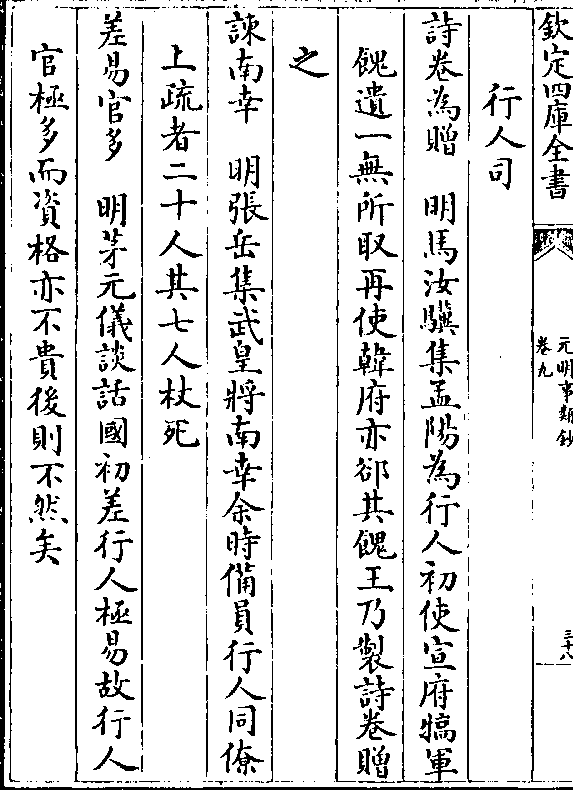 欽定四庫全書
元明事類鈔
卷九
三十八
行人司
詩卷為贈　明馬汝驥集孟陽為行人初使宣府犒軍
餽遺一無所取再使韓府亦郤其餽王乃製詩卷贈
之
諫南幸　明張岳集武皇將南幸余時備員行人同僚
上疏者二十人其七人杖死
差易官多　明茅元儀談話國初差行人極易故行人
官極多而資格亦不貴後則不然矣